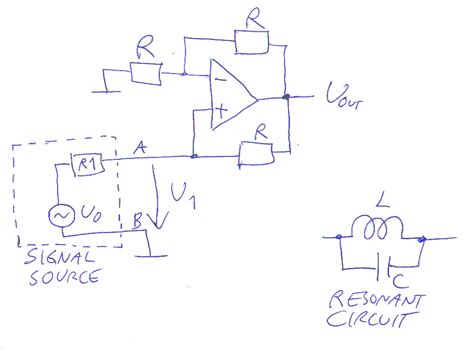 R
R
−
+
U OUT
R
A
R1
U1
U0
B
SIGNAL
SOURCE
L
C
RESONANT
CIRCUIT